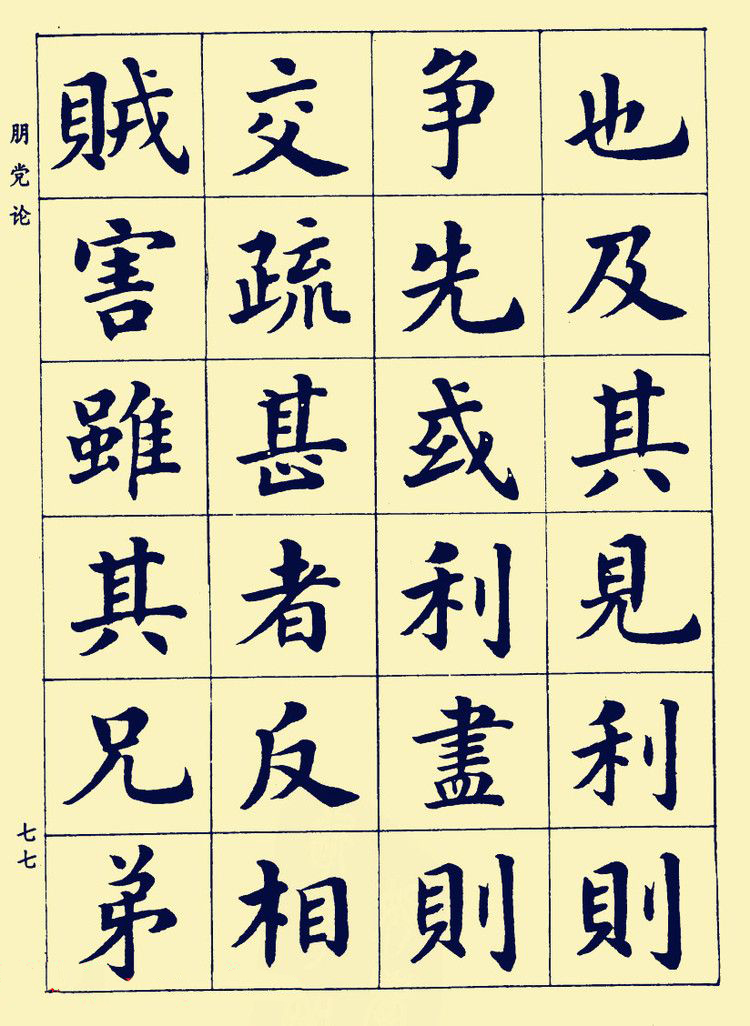 也及其見利則
争先或利盡則
交疏甚者反相
賊害雖其兄弟
朋党论
七七